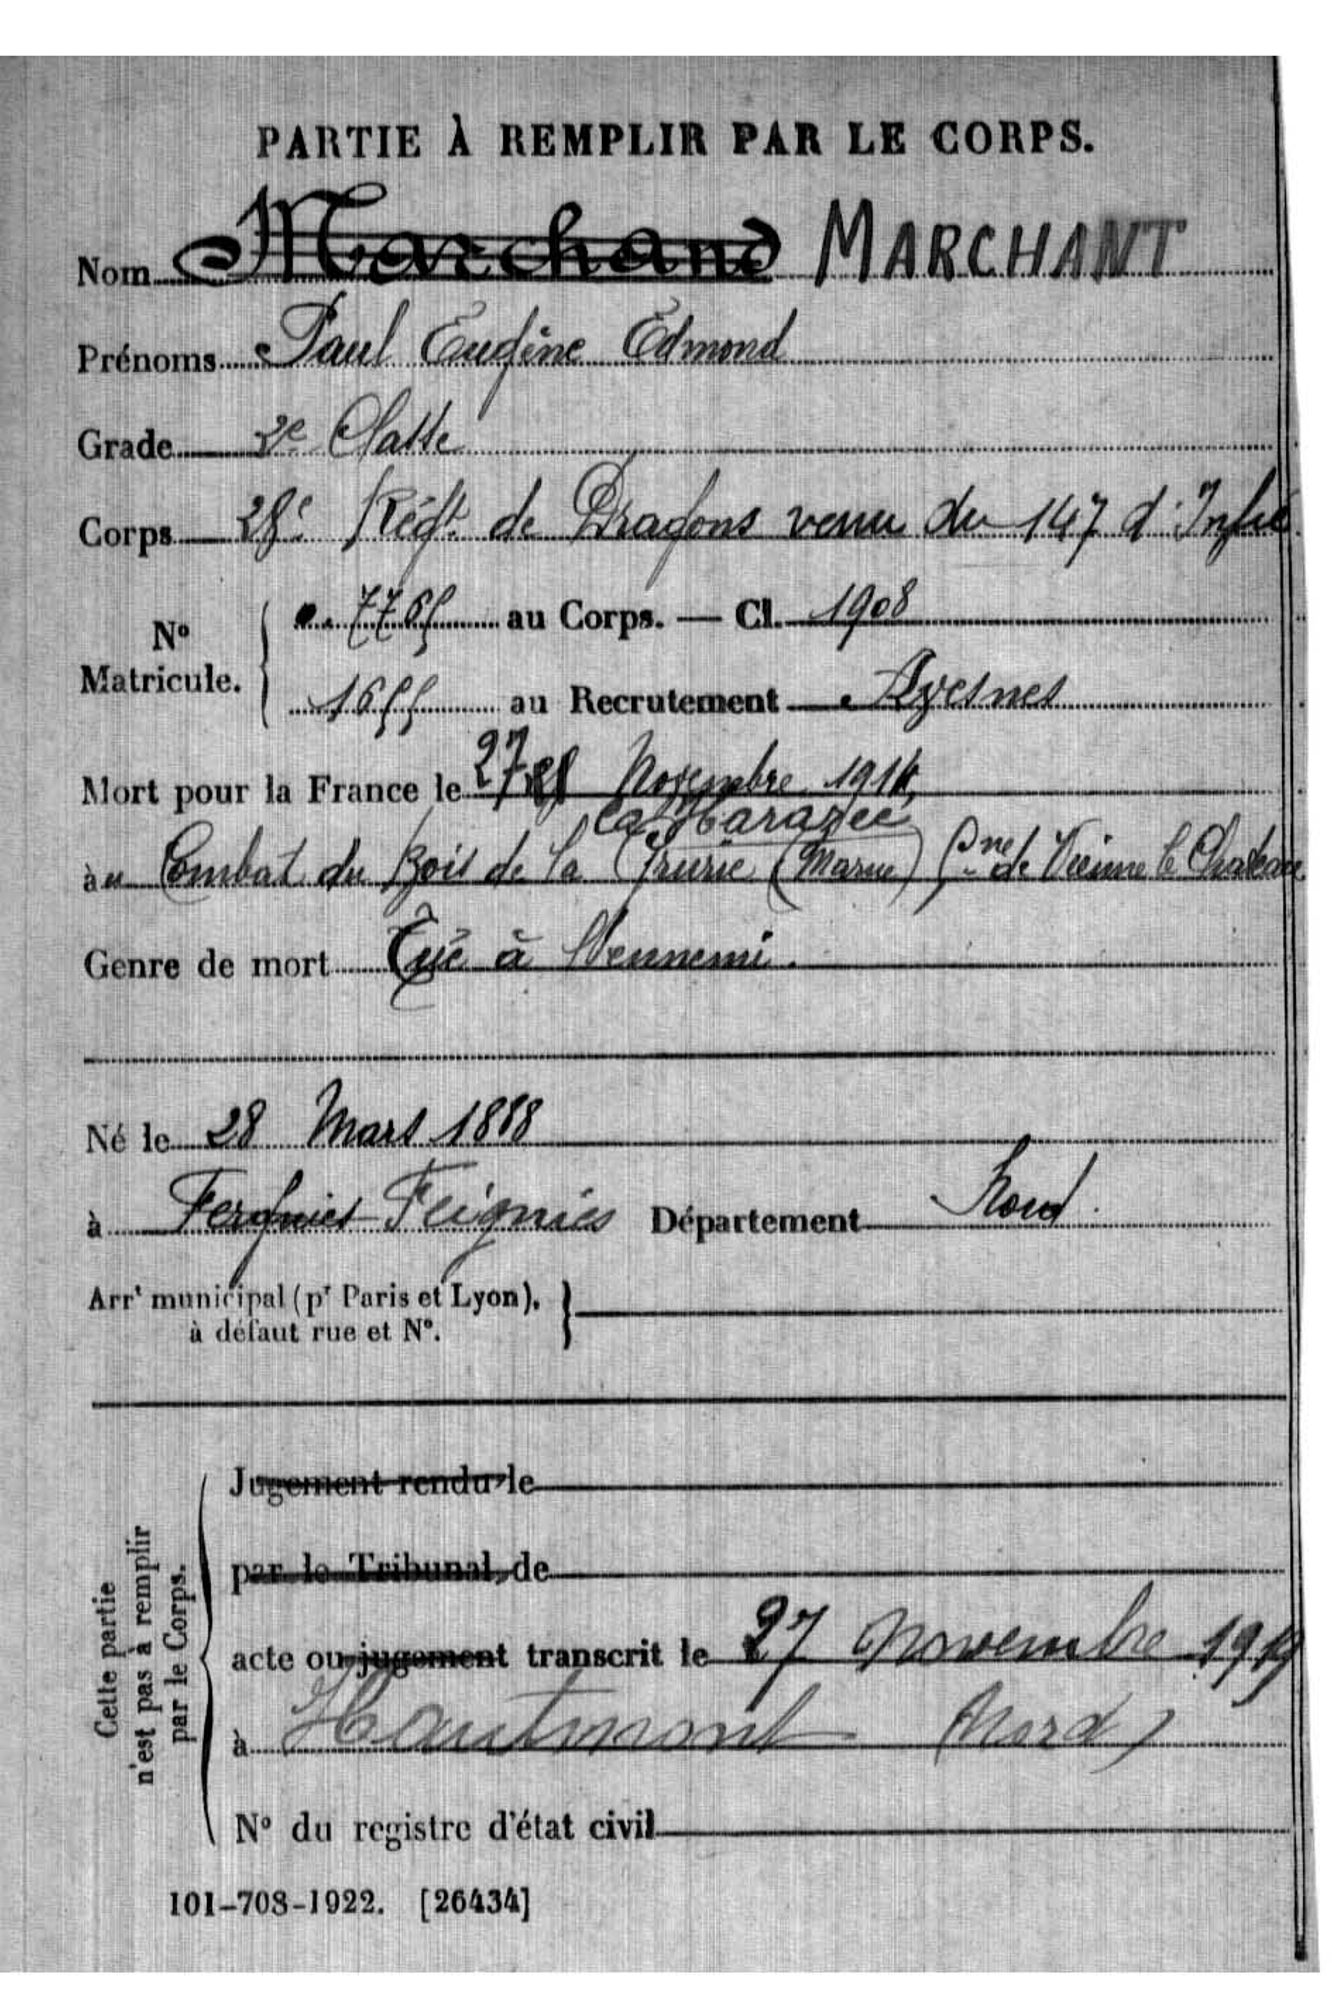 PARTIE À REMPLIR PAR LE CORPS.
Nom Marchand MARCHANT
Prénoms Paul Eugène Edmond
Grade 2e Classe
Corps 28e Régt. de Dragons venu du 147 d'Infie
No Matricule.
7765 au Corps. — Cl. 1908
1655 au Recrutement Avesnes
Mort pour la France le 27 Novembre 1914
La Harazée
au Combat du Bois de la Grurie (Marne) Cne de Vienne le Chateau
Genre de mort Tué à l'ennemi.
Né le 28 Mars 1888
à Feignies Département Nord.
Arrt municipal (pr Paris et Lyon),
à défaut rue et No.
Cette partie
n'est pas à remplir
par le Corps.
Jugement rendu le
par le Tribunal de
acte ou jugement transcrit le 27 Novembre 1919
à Hautmont (Nord)
No du registre d'état civil
101-708-1922. [26434]